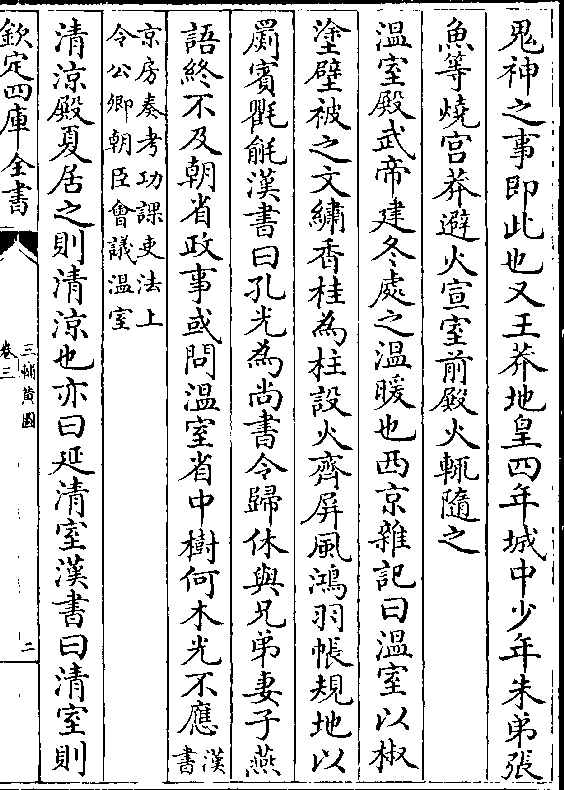 鬼神之事即此也又王莽地皇四年城中少年朱弟張
魚等燒宫莽避火宣室前殿火輒隨之
溫室殿武帝建冬處之溫暖也西京雜記曰溫室以椒
塗壁被之文繡香桂為柱設火齊屏風鴻羽帳規地以
罽賓氍毹漢書曰孔光為尚書令歸休與兄弟妻子燕
語終不及朝省政事或問溫室省中樹何木光不應漢書
京房奏考功課吏法上
令公卿朝臣會議溫室
清涼殿夏居之則清涼也亦曰延清室漢書曰清室則
欽定四庫全書
三輔黄圖
卷三
二